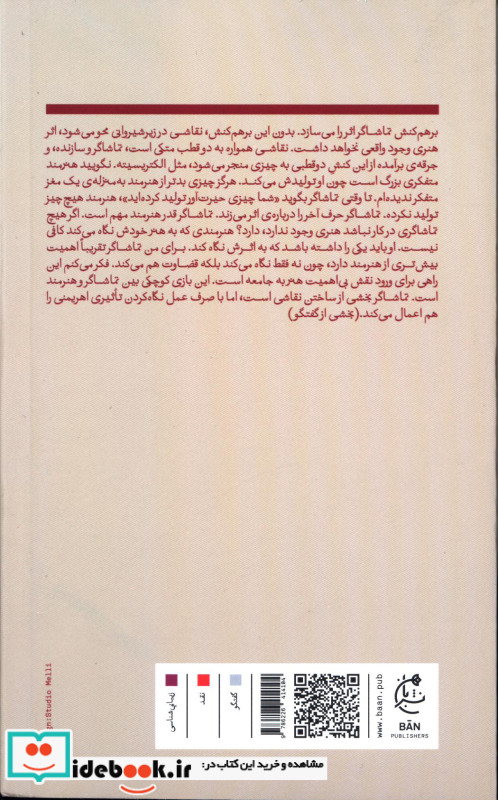 برهم‌کنش تماشاگر اثر را می‌سازد. بدون این برهم‌کنش، نقاشی در زیرشیروانی محو می‌شود، اثر
هنری وجود واقعی نخواهد داشت. نقاشی همواره به دو قطب متکی است، تماشاگر و سازنده، و
جرقه‌ی برآمده از این کنش دوقطبی به چیزی منجر می‌شود، مثل الکتریسیته. نگویید هنرمند
متفکری بزرگ است چون او تولیدش می‌کند. هرگز چیزی بدتر از هنرمند به‌منزله‌ی یک مغز
متفکر ندیده‌ام. تا وقتی تماشاگر بگوید «شما چیزی حیرت‌آور تولید کرده‌اید»، هنرمند هیچ چیز
تولید نکرده. تماشاگر حرف آخر را درباره‌ی اثر می‌زند. تماشاگر قدر هنرمند مهم است. اگر هیچ
تماشاگری در کار نباشد هنری وجود ندارد، دارد؟ هنرمندی که به هنر خودش نگاه می‌کند کافی
نیست. او باید یکی را داشته باشد که به اثرش نگاه کند. برای من تماشاگر تقریباً اهمیت
بیش‌تری از هنرمند دارد، چون نه فقط نگاه می‌کند بلکه قضاوت هم می‌کند. فکر می‌کنم این
راهی برای ورود نقش بی‌اهمیت هنر به جامعه است. این بازی کوچکی بین تماشاگر و هنرمند
است. تماشاگر بخشی از ساختن نقاشی است، اما با صرف عمل نگاه‌کردن تأثیری اهریمنی را
هم اعمال می‌کند. (بخشی از گفتگو)
gn:Studio Melli
زیبایی‌شناسی
نقد
گفتگر
9 786226 414104
www.baan.pub
نشر بان
BĀN
PUBLISHERS
idebook.ir
مشاهده و خرید این کتاب در: